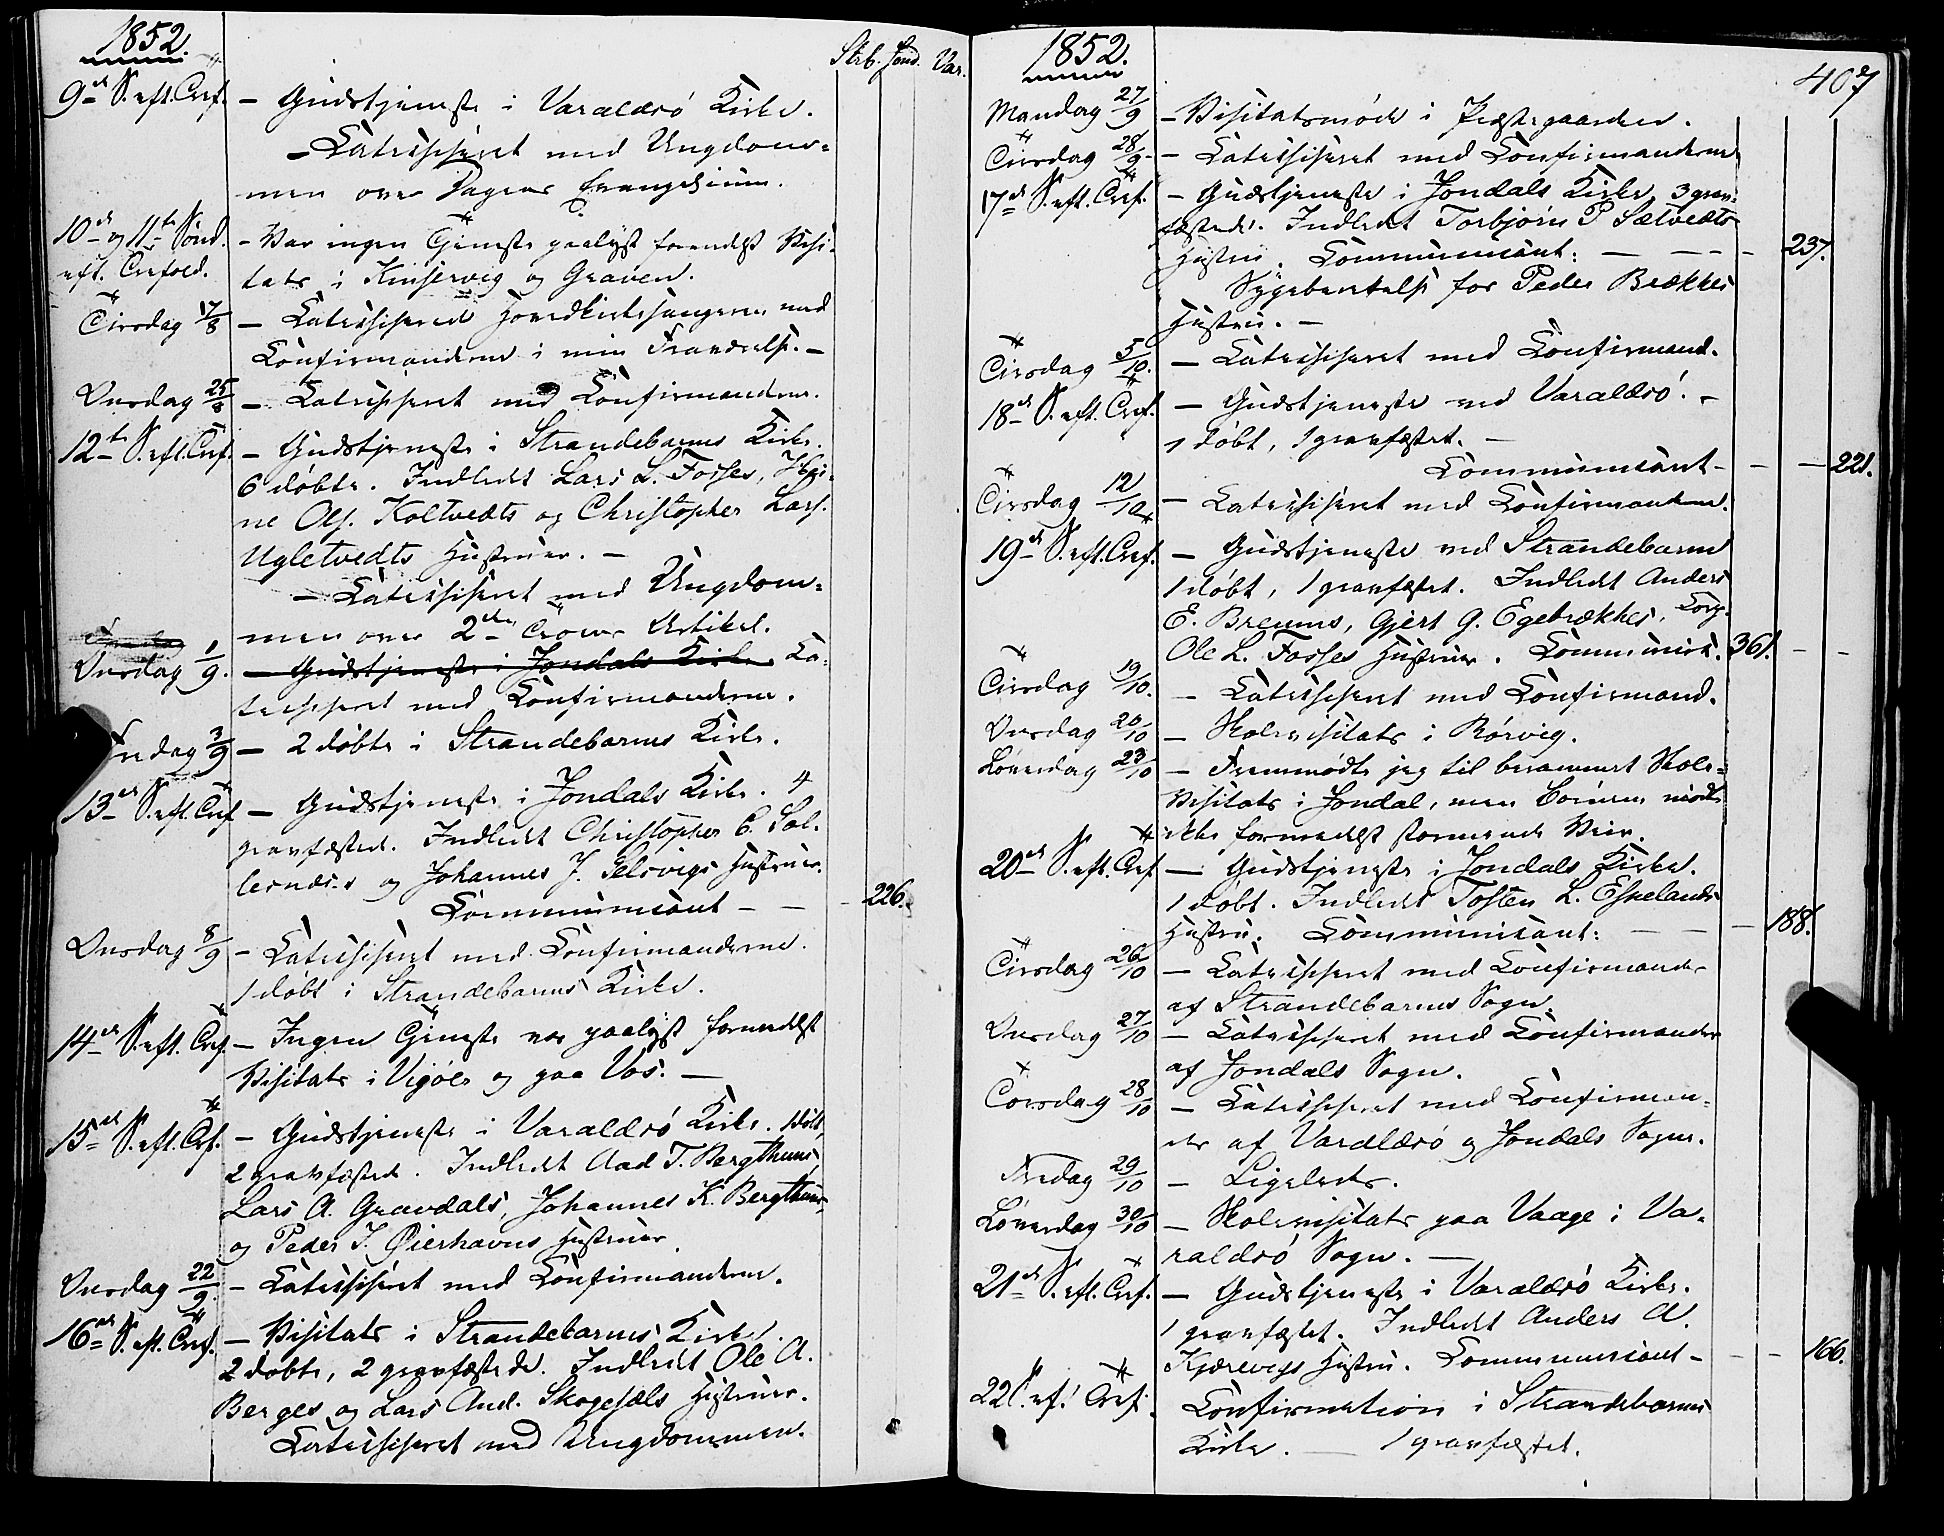 1852.
Strb. Jond. Var.
9de S. eft. Tref. - Gudstjeneste i Varaldsö Kirke.
- Catechiseret med Ungdom-
men over Dagens Evangelium.
10de og 11te Sönd. - Var ingen Tjeneste paalyst formedelst Visi-
eft. Trefold. tats i Kinservig og Graven.
Tirsdag 17/8 - Catechiserede Hovedkirkesangeren med
Confirmanderne i min Fraværelse. -
Onsdag 25/8 - Catechiseret med Confirmanderne.
12te S. eft. Tref. - Gudstjeneste i Strandebarms Kirke.
6 döbte. Indledt Lars L. Fosses,
ne Ols. Koltvedts og Christopher Lars.
Ugletvedts Hustruer. -
- Catechiseret med Ungdom-
men over 2den Troens Artikel.
Onsdag 1/9. - Gudstjeneste i Jondals Kirke Ca-
techiseret med Confirmanderne.
Fredag 3/9 - 2 döbte i Strandebarms Kirke.
13de S. eft. Tref - Gudstjeneste i Jondals Kirke. 4
gravfæstede. Indledt Christopher C. Sol-
lesnæs's og Johannes J. Selsvigs Hustruer.
Communicant - - - 226.
Onsdag 8/9 - Catechiseret med Confirmanderne.
1 döbt i Strandebarms Kirke.
14de S. eft. Tref. - Ingen Tjeneste var paalyst formedelst
Visitats i Vigöer og paa Vos. -
15de S. eft. Tref. - Gudstjeneste i Varaldsö Kirke. 1 döbt,
2 gravfæstede. Indledt Aad T. Bergthuns,
Lars A. Gravdals, Johannes K. Bergthuns,
og Peder J. Øierhavns Hustruer.
Onsdag 22/9. - Catechiseret med Confirmanderne.
16de S. eft. Tref. - Visitats i Strandebarms Kirke.
2 döbte, 2 gravfæstede. Indledt Ole A.
Berges og Lars And. Skogesæls Hustruer.
Catechiseret med Ungdommen.
1852.
407
Mandag 27/9 - Visitatsmöde i Præstegaarden.
Tirsdag 28/9 - Catechiseret med Confirmanderne
17de S. eft. Tref. - Gudstjeneste i Jondals Kirke, 3 grav-
fæstede. Indledt Torbjörn P Sætvedts
Hustru. Communicant: - - - - 237.
Sygeberettelse for Peder Brækkes
Hustru. -
Tirsdag 5/10. - Catechiseret med Confirmand.
18de S. eft. Tref. - Gudstjeneste ved Varaldsö. -
1 döbt, 1 gravfæstet. -
Communicant - - - 221.
Tirsdag 12/10 - Catechiseret med Confirmanderne.
19de S. eft. Tref. - Gudstjeneste ved Strandebarm
1 döbt, 1 gravfæstet. Indledt Anders
E. Breums, Gjert G. Egebrækkes,
Ole L. Fosses Hustruer. Communik. 361. - -
Tirsdag 19/10. - Catechiseret med Confirmand.
Onsdag 20/10 - Skolevisitats i Rörvig.
Löverdag 23/10 - Fremmödte jeg til berammet Skole-
Visitats i Jondal, men Börnene mödte
ikke formedelst stormende Veir.
20de S. eft. Tref - Gudstjeneste i Jondals Kirke.
1 döbt. Indledt Tosten L. Eskelands
Hustru. Communicant: - - - 188.
Tirsdag 26/10 - Catechiseret med Confirmander
af Strandebarms Sogn.
Onsdag 27/10 - Catechiseret med Confirmander
af Jondals Sogn.
Torsdag 28/10 - Catechiseret med Confirman-
der af Varaldsö og Jondals Sogne.
Fredag 29/10 - Ligeledes.
Löverdag 30/10 - Skolevisitats paa Vaage i Va-
raldsö Sogn. -
21de S. eft. Tref. - Gudstjeneste i Varaldsö Kirke.
1 gravfæstet. Indledt Anders A.
Kjærevigs Hustru. Communicant - - - 166.
22 S. ef. Tref. Confirmation i Strandebarms
Kirke. - 1 gravfæstet.